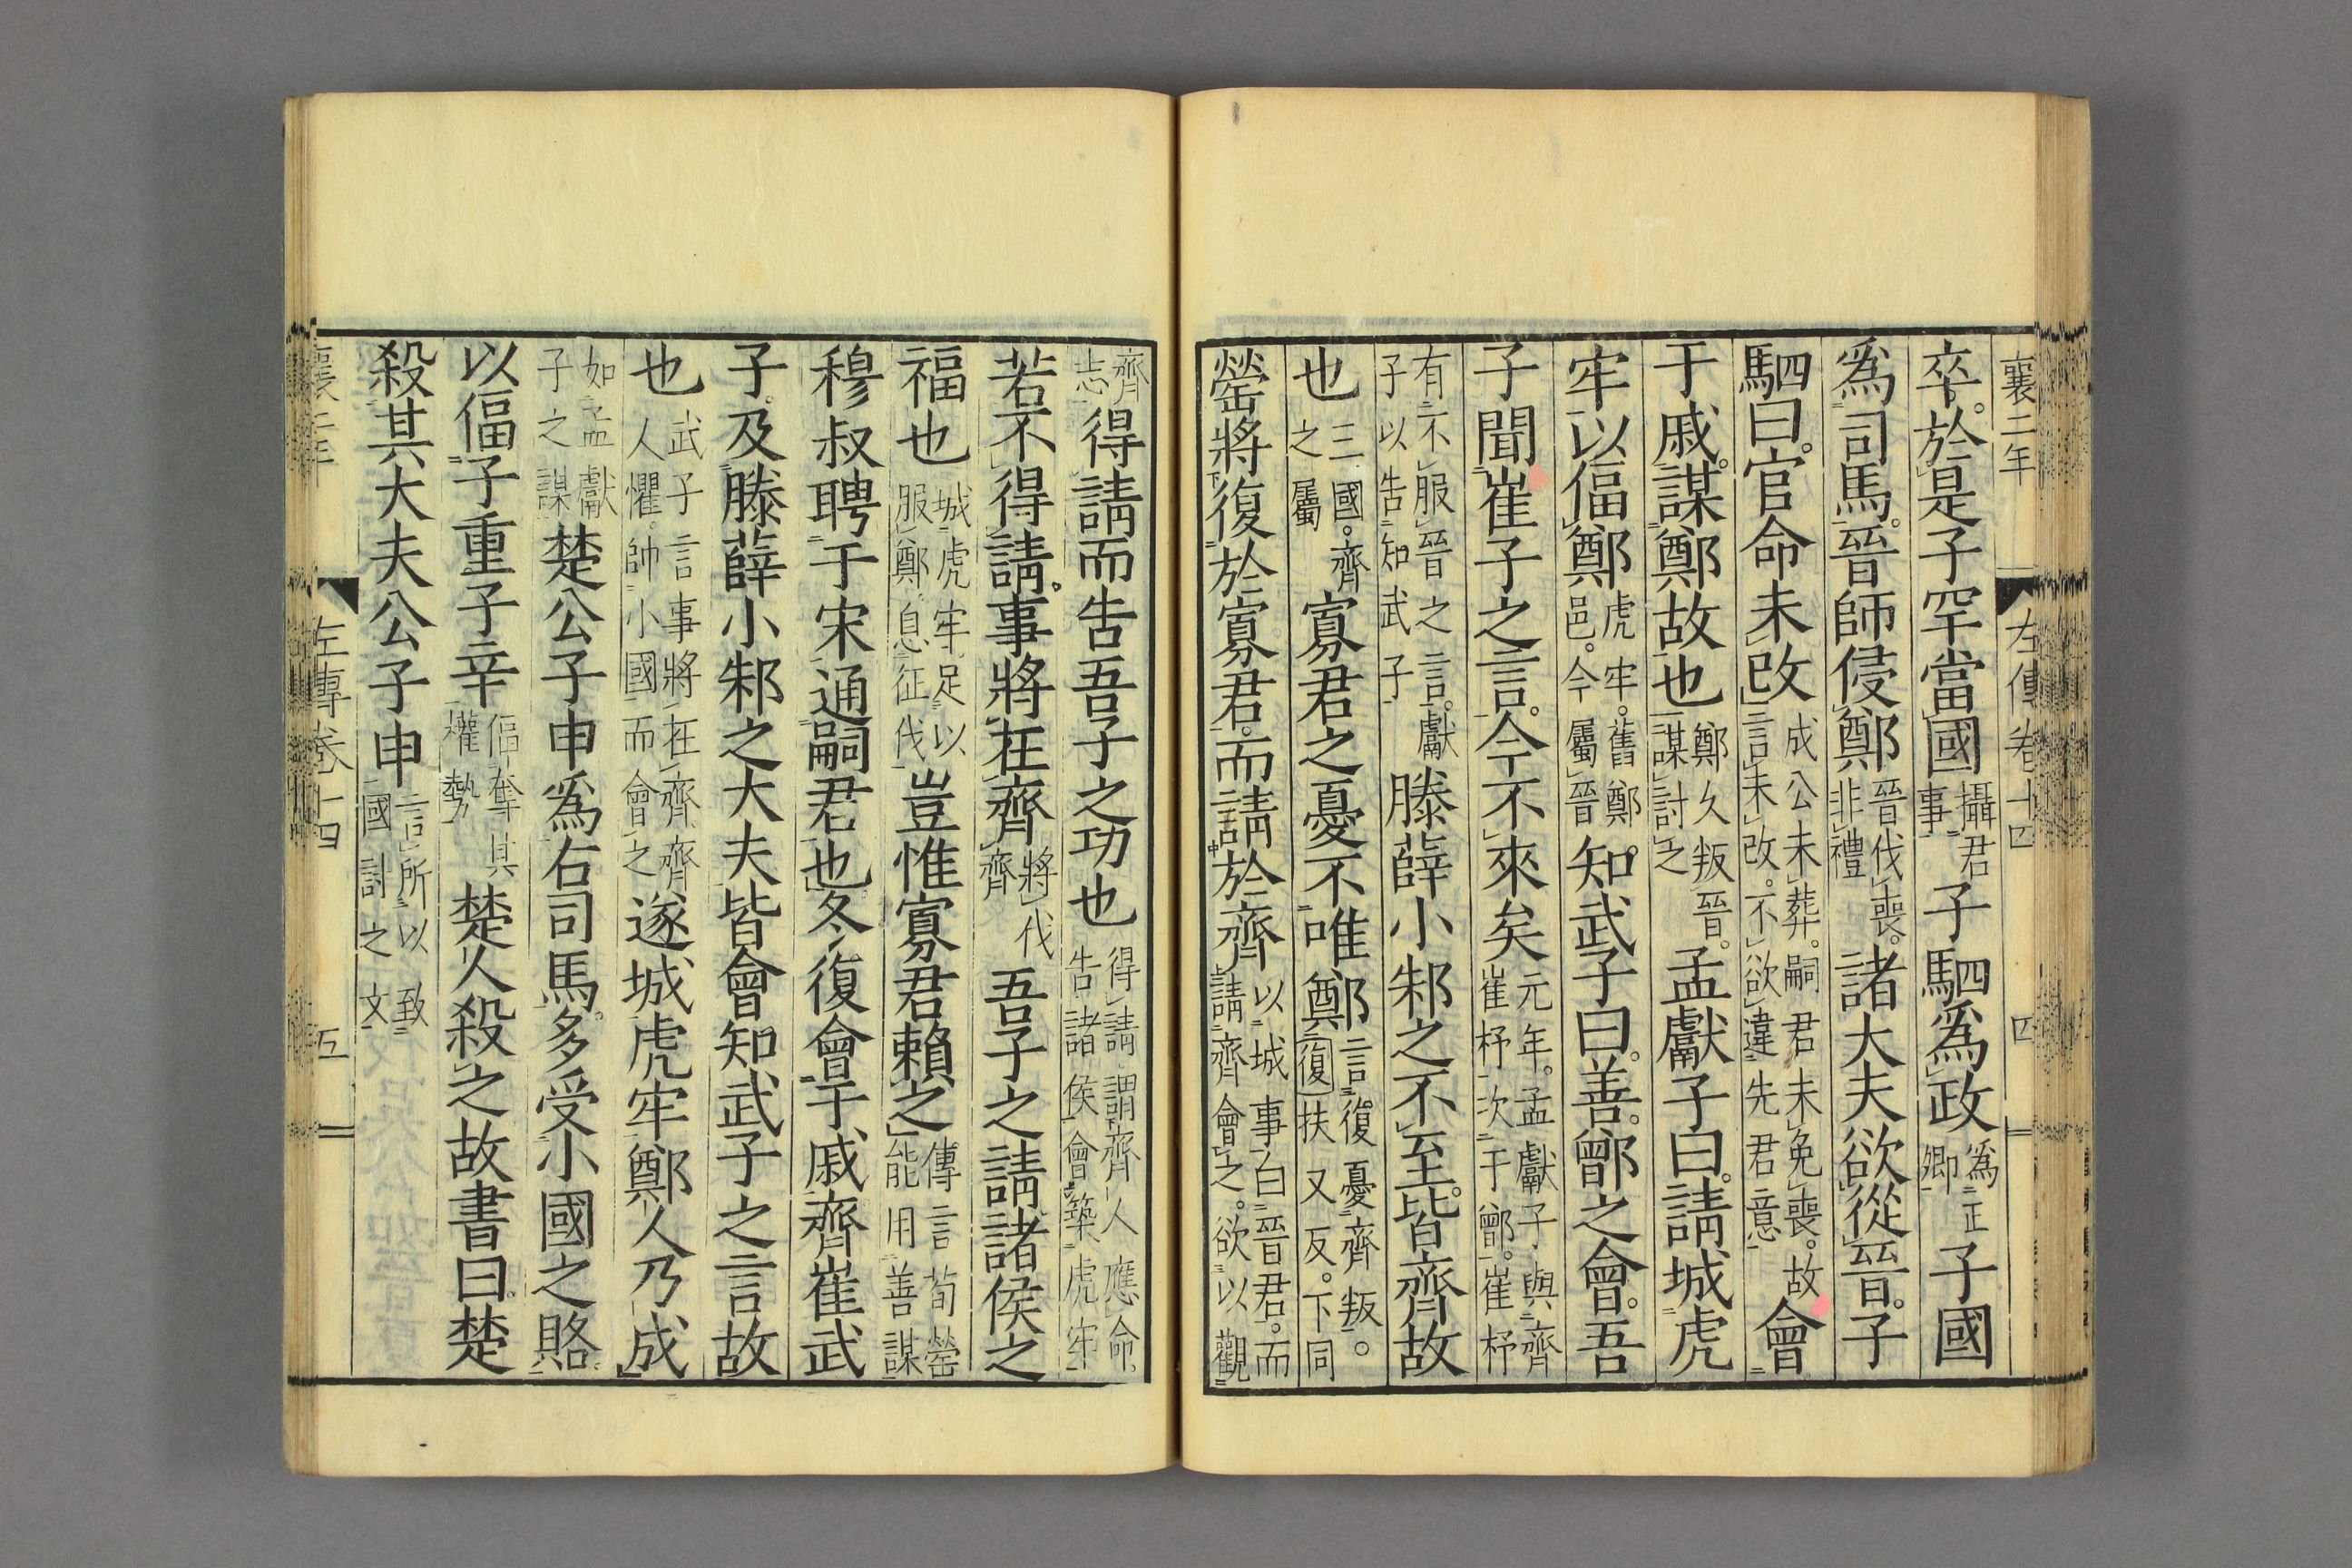 襄二年 左傳卷十四 四
卒。於是子罕當國攝君事子駟爲政爲正卿子國
爲司馬。晉師侵鄭晉伐喪。非禮諸大夫欲從晉。子
駟曰。官命未改成公未葬。嗣君未免喪。故言未改。不欲違先君意會
于戚。謀鄭故也鄭久叛晉。謀討之孟獻子曰。請城虎
牢以偪鄭虎牢。舊鄭邑。今屬晉知武子曰。善。鄫之會。吾
子聞崔子之言。今不來矣元年。孟獻子與齊崔杼次于鄫。崔杼
有不服晉之言。獻子以告知武子滕薛小邾之不至。皆齊故
也三國。齊之屬寡君之憂不唯鄭言復憂齊叛。復扶又反。下同
罃將復於寡君。而請於齊以城事白晉君。而請齊會之。欲以觀
齊志得請而告吾子之功也得請謂齊人應命。告諸侯會築虎牢
若不得請。事將在齊將伐齊吾子之請諸侯之
福也城虎牢足以服鄭息征伐豈惟寡君賴之傳言荀罃能用善謀
穆叔聘于宋通嗣君也冬復會于戚齊崔武
子。及滕薛小邾之大夫皆會知武子之言故
也武子言事將在齊。齊人懼。帥小國而會之遂城虎牢鄭人乃成
如孟獻子之謀楚公子申爲右司馬。多受小國之賂。
以偪子重子辛偪奪其權勢楚人殺之故書曰。楚
殺其大夫公子申言所以致國討之文
襄二年 左傳卷十四 五